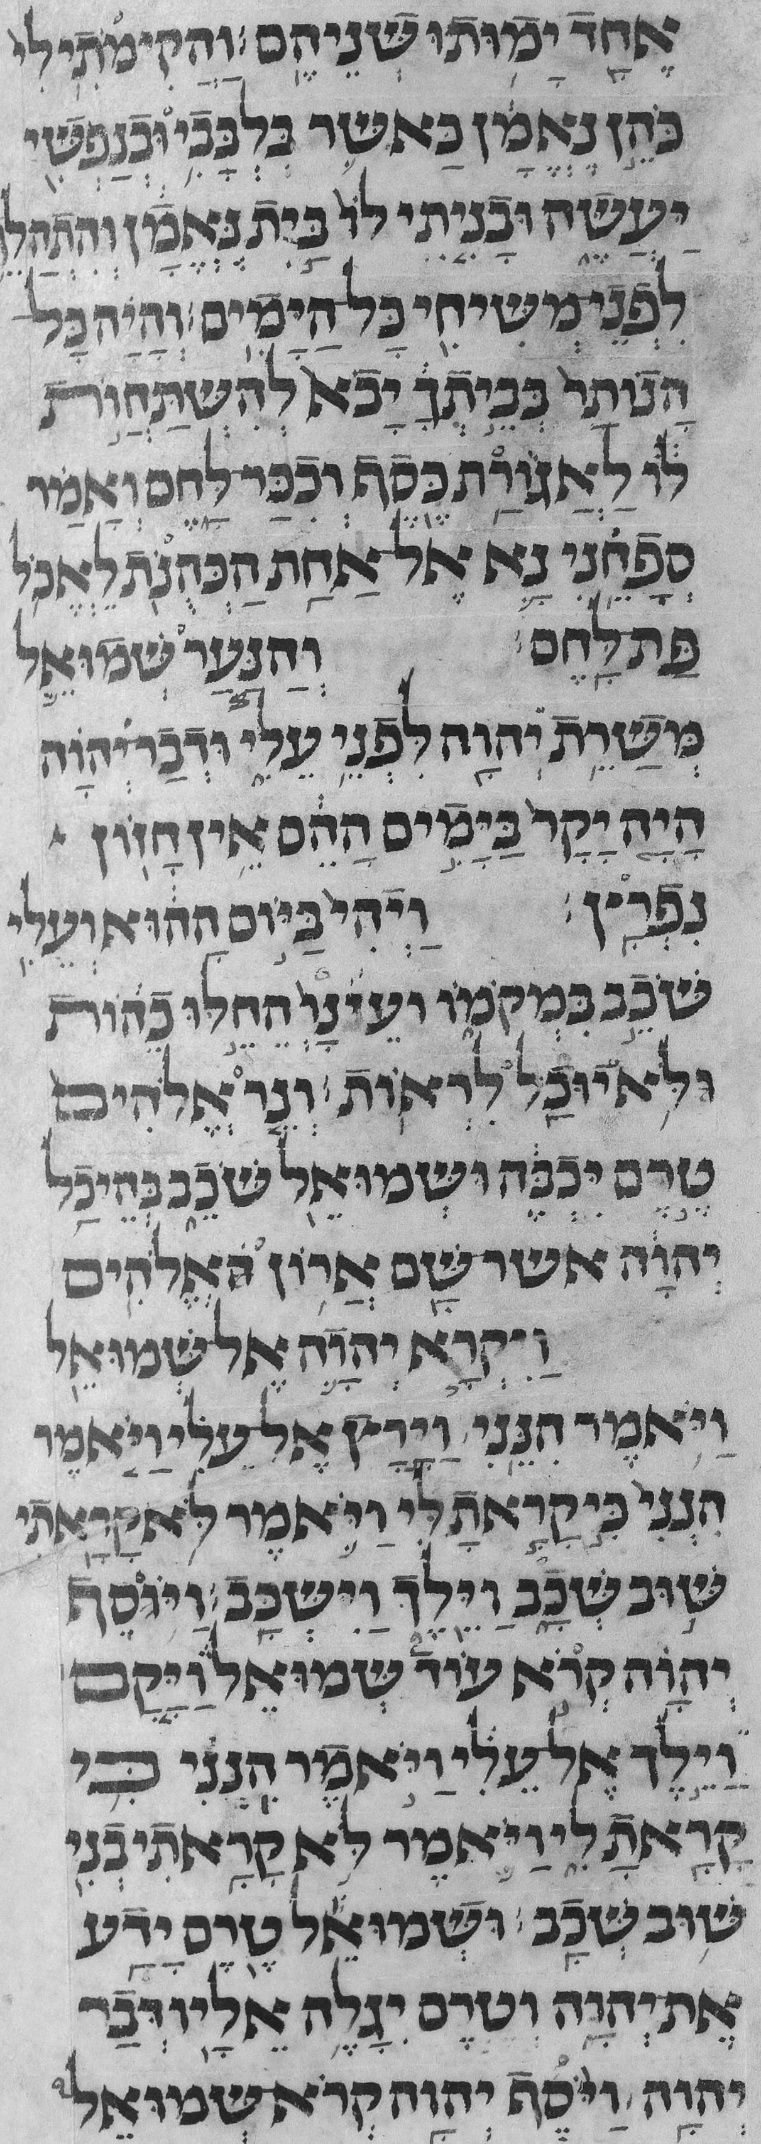 אֶחָד יָמוּתוּ שְׁנֵיהֶם׃ וַהֲקִימֹתִי לִי
כֹּהֵן נֶאֱמָן כַּאֲשֶׁר בִּלְבָבִי וּבְנַפְשִׁי
יַעֲשֶׂה וּבָנִיתִי לוֹ בַּיִת נֶאֱמָן וְהִתְהַלֵּךְ
לִפְנֵי מְשִׁיחִי כָּל הַיָּמִים׃ וְהָיָה כָּל
הַנּוֹתָר בְּבֵיתְךָ יָבֹא לְהִשְׁתַּחֲוֹת
לוֹ לַאֲגוֹרַת כֶּסֶף וְכִכַּר לָחֶם וְאָמַר
סְפָחֵנִי נָא אֶל אַחַת הַכְּהֻנֹּת לֶאֱכֹל
פַּת לָחֶם׃ וְהַנַּעַר שְׁמוּאֵל
מְשָׁרֵת יְהוָה לִפְנֵי עֵלִי וּדְבַר יְהוָה
הָיָה יָקָר בַּיָּמִים הָהֵם אֵין חָזוֹן
נִפְרָץ׃ וַיְהִי בַּיּוֹם הַהוּא וְעֵלִי
שֹׁכֵב בִּמְקֹמוֹ וְעֵינָו הֵחֵלּוּ כֵהוֹת
וְלֹא יוּכַל לִרְאוֹת׃ וְנֵר אֱלֹהִים
טֶרֶם יִכְבֶּה וּשְׁמוּאֵל שֹׁכֵב בְּהֵיכַל
יְהוָה אֲשֶׁר שָׁם אֲרוֹן הָאֱלֹהִים
וַיִּקְרָא יְהוָה אֶל שְׁמוּאֵל
וַיֹּאמֶר הִנֵּנִי׃ וַיָּרָץ אֶל עֵלִי וַיֹּאמֶר
הִנְנִי כִּי קָרָאתָ לִּי וַיֹּאמֶר לֹא קָרָאתִי
שׁוּב שְׁכָב וַיֵּלֶךְ וַיִּשְׁכָּב׃ וַיֹּסֶף
יְהוָה קְרֹא עוֹד שְׁמוּאֵל וַיָּקָם
וַיֵּלֶךְ אֶל עֵלִי וַיֹּאמֶר הִנְנִי כִּי
קָרָאתָ לִי וַיֹּאמֶר לֹא קָרָאתִי בְנִי
שׁוּב שְׁכָב׃ וּשְׁמוּאֵל טֶרֶם יָדַע
אֶת יְהוָה וְטֶרֶם יִגָּלֶה אֵלָיו דְּבַר
יְהוָה׃ וַיֹּסֶף יְהוָה קְרֹא שְׁמוּאֵל